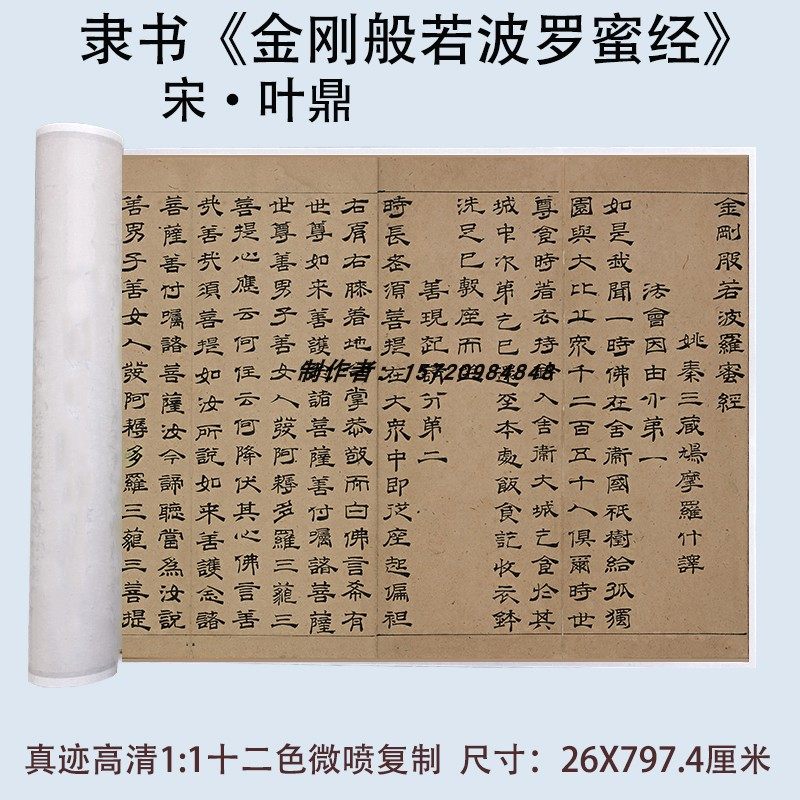 隶书《金刚般若波罗蜜经》
宋·叶鼎
金剛般若波羅蜜經
姚秦三蔵鳩摩羅什譯
法會因由分第一
如是我聞一時佛在舍衞國祇樹給孤獨
園與大比丘衆千二百五十人俱爾時世
尊食時着衣持入舍衞大城乞食於其
城中次第乞已還至本處飯食訖收衣鉢
洗足已敷座而
善現起分第二
時長老須菩提在大衆中即從座起偏袒
右肩右膝着地掌恭敬而白佛言希有
世尊如来善護諸菩薩善付囑諸菩薩
世尊善男子善女人發阿耨多羅三藐三
菩提心應云何住云何降伏其心佛言善
哉善哉須菩提如汝所說如来善護念諸
菩薩善付囑諸菩薩汝今諦聽當為汝說
善男子善女人發阿耨多羅三藐三菩提
制作者：15720984848
真迹高清1:1十二色微喷复制 尺寸：26X797.4厘米